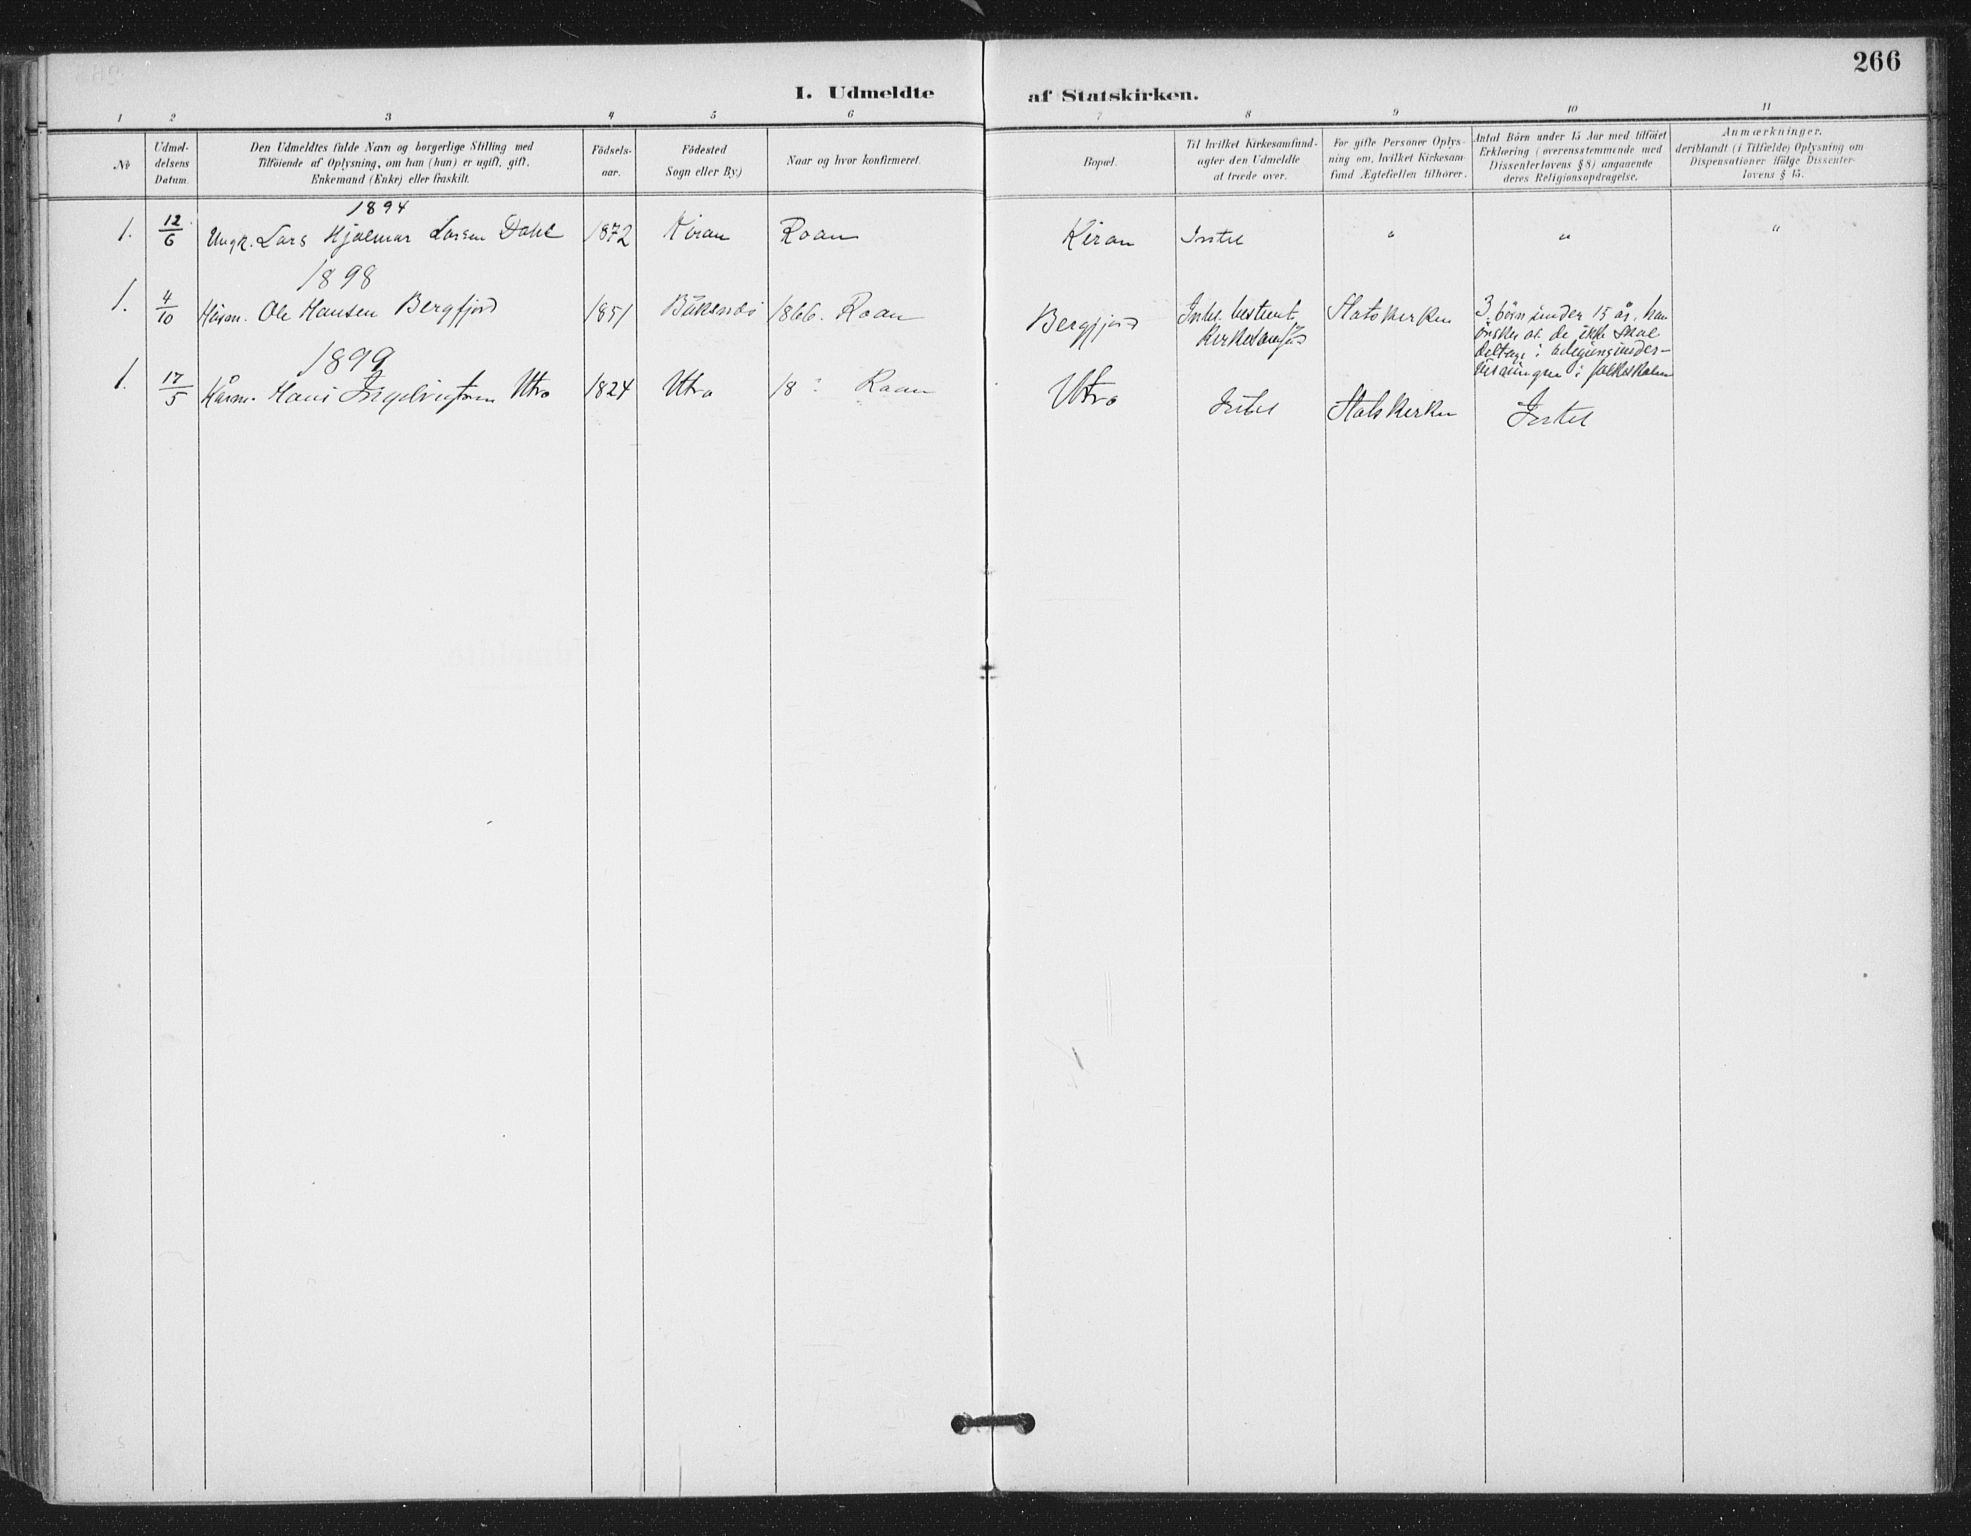 266
I. Udmeldte af Statskirken.
1 2 3 4 5 6 7 8 9 10 11
No
Udmel-
delsens
Datum.
Den Udmeldtes fulde Navn og borgerlige Stilling med
Tilföiende af Oplysning, om han (hun) er ugift, gift,
Enkemand (Enke) eller fraskilt.
Födsels-
aar.
Födested
Sogn eller By)
Naar og hvor konfirmeret.
Bopæl.
Til hvilket Kirkesamfund-
agter den Udmeldte
at træde over.
For gifte Personer Oplys-
ning om, hvilket Kirkesam-
fund Ægtefællen tilhörer.
Antal Börn under 15 Aar med tilföiet
Erklæring (overensstemmende med
Dissenterlovens § 8) angaaende
deres Religionsopdragelse.
Anmærkninger,
deriblandt (i Tilfælde) Oplysning om
Dispensationer ifölge Dissenter-
lovens § 15.
1894
1. 12/6 Ungk. Lars Hjalmar Larsen Dahl 1872 Kiran Roan Kiran Intet " " "
1898
1. 4/10 Husm. Ole Hansen Bergfjord 1851 1866. Roan Bergfjord Intet bestemt Statskirken 3 börn under 15 år, han
Kirkesamfund önsker at de ikke skal
deltage i religionsunder-
visningen i folkeskolen
1899
1. 17/5 Hans Utro 1824 Utro 18 ? Roan Utro Intet Statskirken Intet